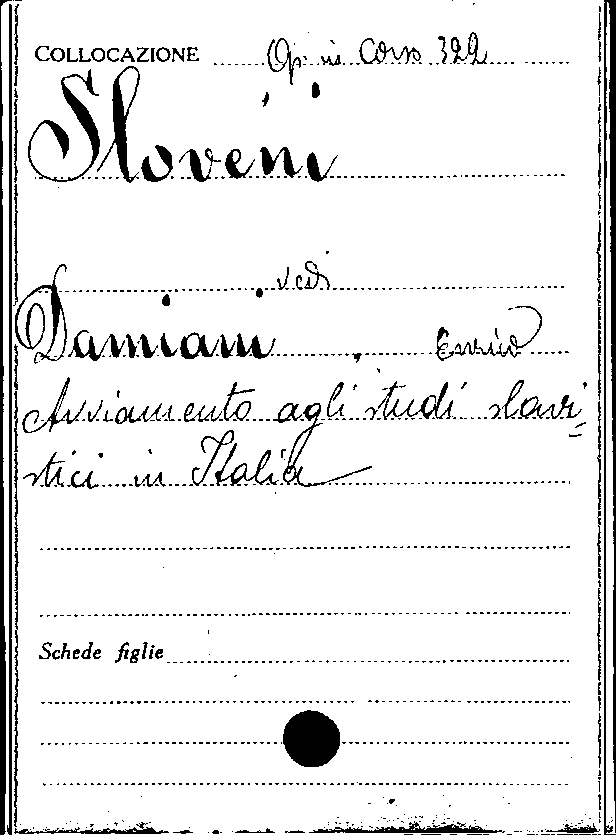 COLLOCAZIONE Op. in Corso 322
Sloveni
vedi
Damiani, Enrico
Avviamento agli studi slavi=
stici in Italia
Schede figlie